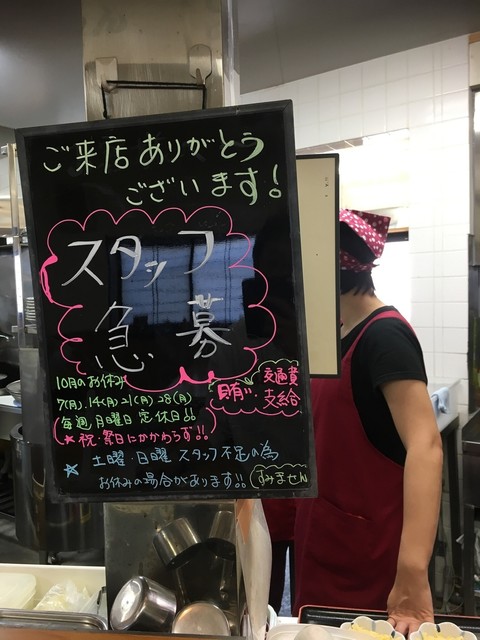 ご来店ありがとう
ございます!
スタッフ
急募
賄い 交通費
支給
10月のお休み
7(月).14(月)21(月)28(月)
毎週月曜日定休日
★祝・祭日にかかわらず!!
☆土曜・日曜 スタッフ不足の為
お休みの場合があります!! すみません